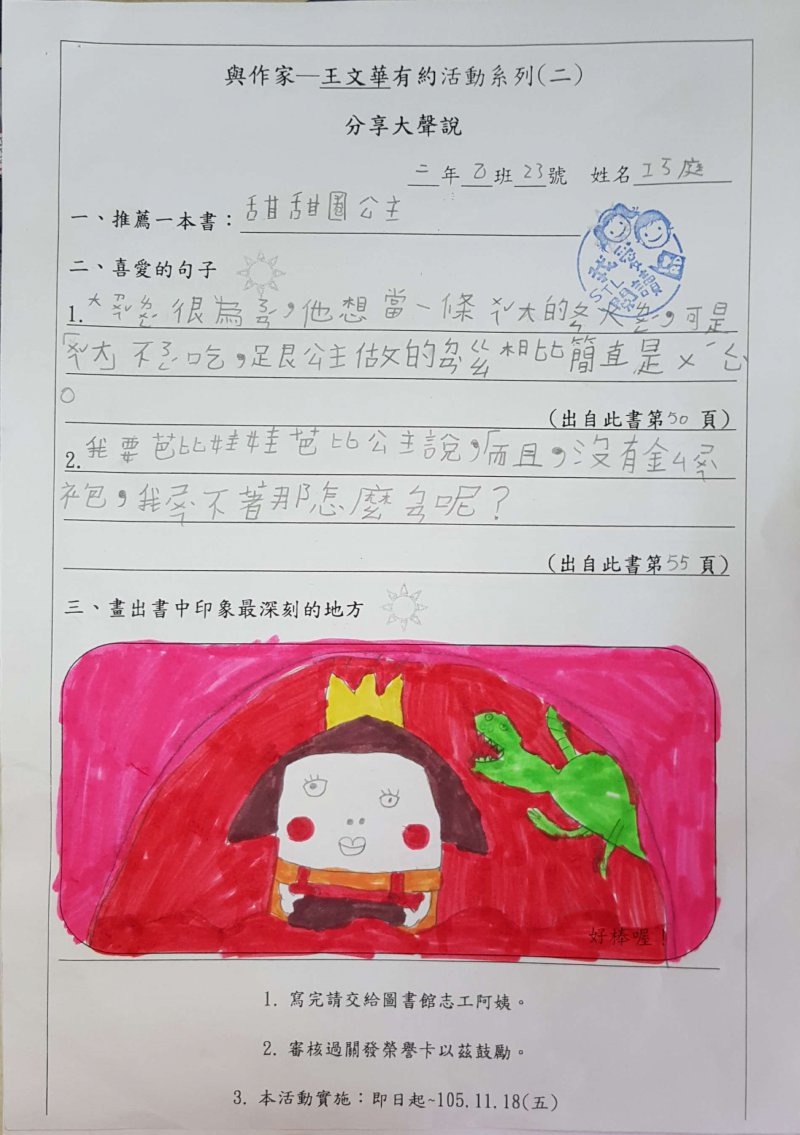 與作家—王文華有約活動系列(二)
分享大聲說
二年乙班23號 姓名 工巧庭
一、推薦一本書：甜甜圈公主
二、喜愛的句子
1. 很為，他想當一條的，可是
不吃，跟公主做的相比簡直是ㄨˊㄙ
。
(出自此書第50頁)
2. 我要芭比娃娃芭比公主說，「而且，沒有金
袍，我不著那怎麼呢？
(出自此書第55頁)
三、畫出書中印象最深刻的地方
好棒喔！
1. 寫完請交給圖書館志工阿姨。
2. 審核過關發榮譽卡以茲鼓勵。
3. 本活動實施：即日起~105.11.18(五)